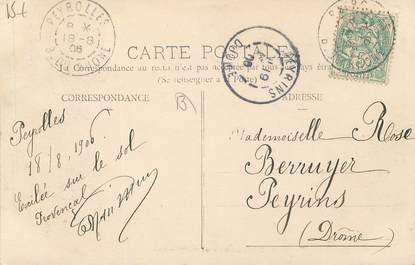 15€
PEYROLLES
18-8
06
CARTE POSTALE
La Correspondance au recto n'est pas acceptée par tous les pays étrangers
(Se renseigner à la Poste)
PEYRINS
DROME
CORRESPONDANCE
ADRESSE
Peyrolles
18/8/1906
Exilée sur le sol
Provençal
Mademoiselle Rose
Berruyer
Peyrins
(Drôme)